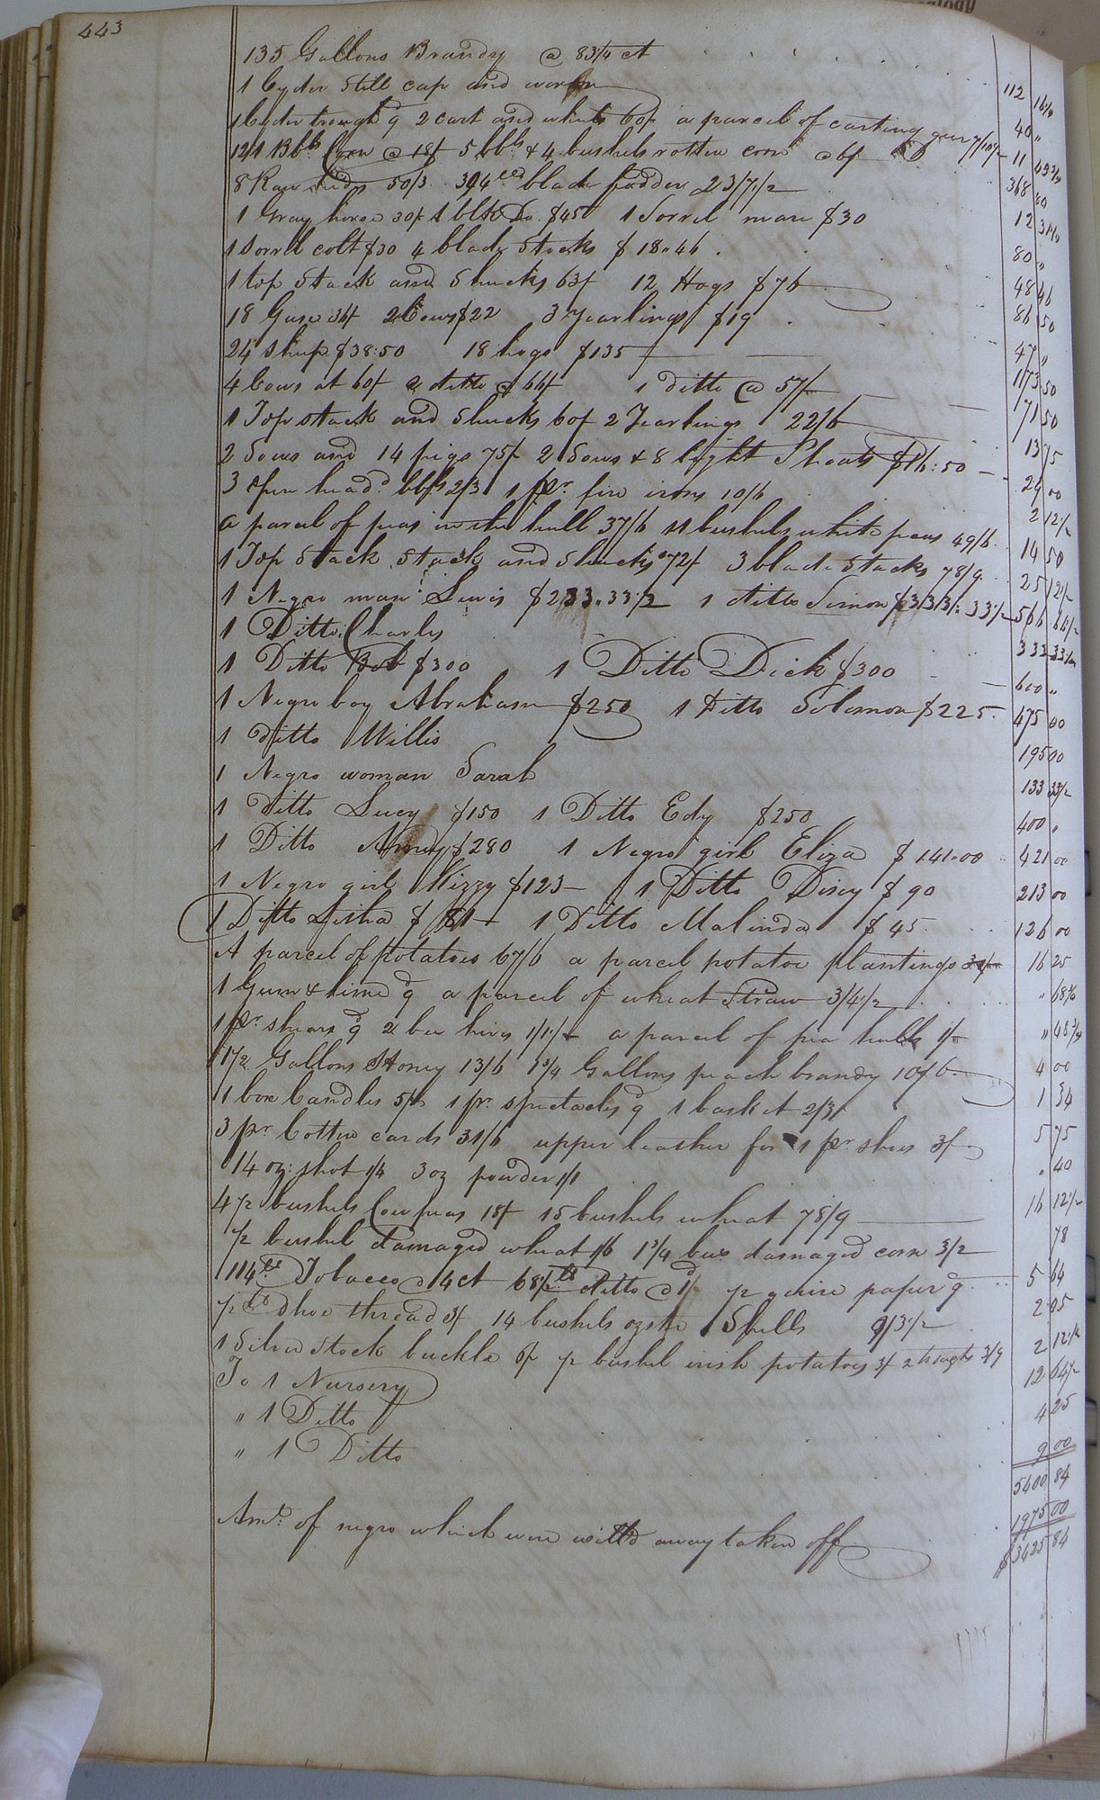 443
135 Gallons Brandy @ 83¼ ct 112
1 Cyder Still cap and worm 40 "
1 Cyder trough 9d 2 cart and wheels 60/ a parcel of casting 11
121 Bbls Corn @ 18/ 5 bbls & 4 bushels rotten corn @ 6/ 368 80
8 Raw hides 50/3 394 wt blade fodder 23/7½ 12
1 Gray horse 30/ 1 blk Do. $450 1 Sorrel mare $30 80 "
1 Sorrel colt $30 4 blade Stacks $18.46 48 46
1 top Stack and Shucks 63/ 12 Hogs $76 86 50
18 Geese 36/ 2 Cows $22 3 Yearlings $19 47 "
24 sheep $38:50 18 hogs $135 173 50
4 Cows at 60/ 2 ditto @ 66/ 1 ditto @ 57/ 71 50
1 Top stack and Shucks 60/ 2 Yearlings 22/6 13 75
2 Sows and 14 pigs 75/ 2 Sows & 8 light Shoats $16:50 29 00
3 open head bbls 2/3 1 pr. fire irons 10/6 2 12½
a parcel of peas in the hull 37/6 11 bushels white peas 49/6 14 50
1 Top Stack Stack and Shucks 72/ 3 blade Stacks 78/9 25 12½
1 Negro man Lewis $233.33½ 1 ditto Simon $333:33½ 566 66½
1 Ditto Charles 333 33
1 Ditto Bob $300 1 Ditto Dick $300 600 "
1 Negro boy Abraham $250 1 Ditto Solomon $225 475 00
1 ditto Willis 195 00
1 Negro woman Sarah 133 33½
1 Ditto Lucy $150 1 Ditto Edy $250 400 "
1 Ditto $280 1 Negro girl Eliza $141.00 421 00
1 Negro girl Kizzy $123 1 Ditto Disey $90 213 00
1 Ditto Lisha $81 1 Ditto Malinda $45 126 00
A parcel of Potatoes 67/6 a parcel potatoe plantings 16 25
1 Gum & lime 9d a parcel of wheat Straw 3/4½ "
1 pr shears 9d 2 bee hives a parcel of pea hulls 1/ "
1½ Gallons Honey 13/6 1¾ Gallons peach brandy 10/6 4 00
1 box Candles 5/ 1 pr. spectacles 9d 1 basket 2/3 1 34
3 pr Cotton cards 31/6 upper leather for 1 pr shoes 3/ 5 75
14 oz: shot 1/4 3 oz powder 1/1 40
4½ bushels Cow peas 18/ 15 bushels wheat 78/9 16 12½
½ bushel damaged wheat 1/6 1¾ bus damaged corn 3/2 78
114 lb Tobacco @ 4ct 68½ lb ditto @ 1/ ½ quire paper 9d 5 64
½ lb shoe thread 3/ 14 bushels oyster Shells 9/3½ 2 05
1 Silver Stock buckle 6/ ½ bushel irish potatoes 3/ 2 troughs 3/9 2 12½
To 1 Nursery 12 64½
" 1 Ditto 4 25
" 1 Ditto 9 00
5400 84
1975 00
Amt. of negro which were willd away taken off $3425 84